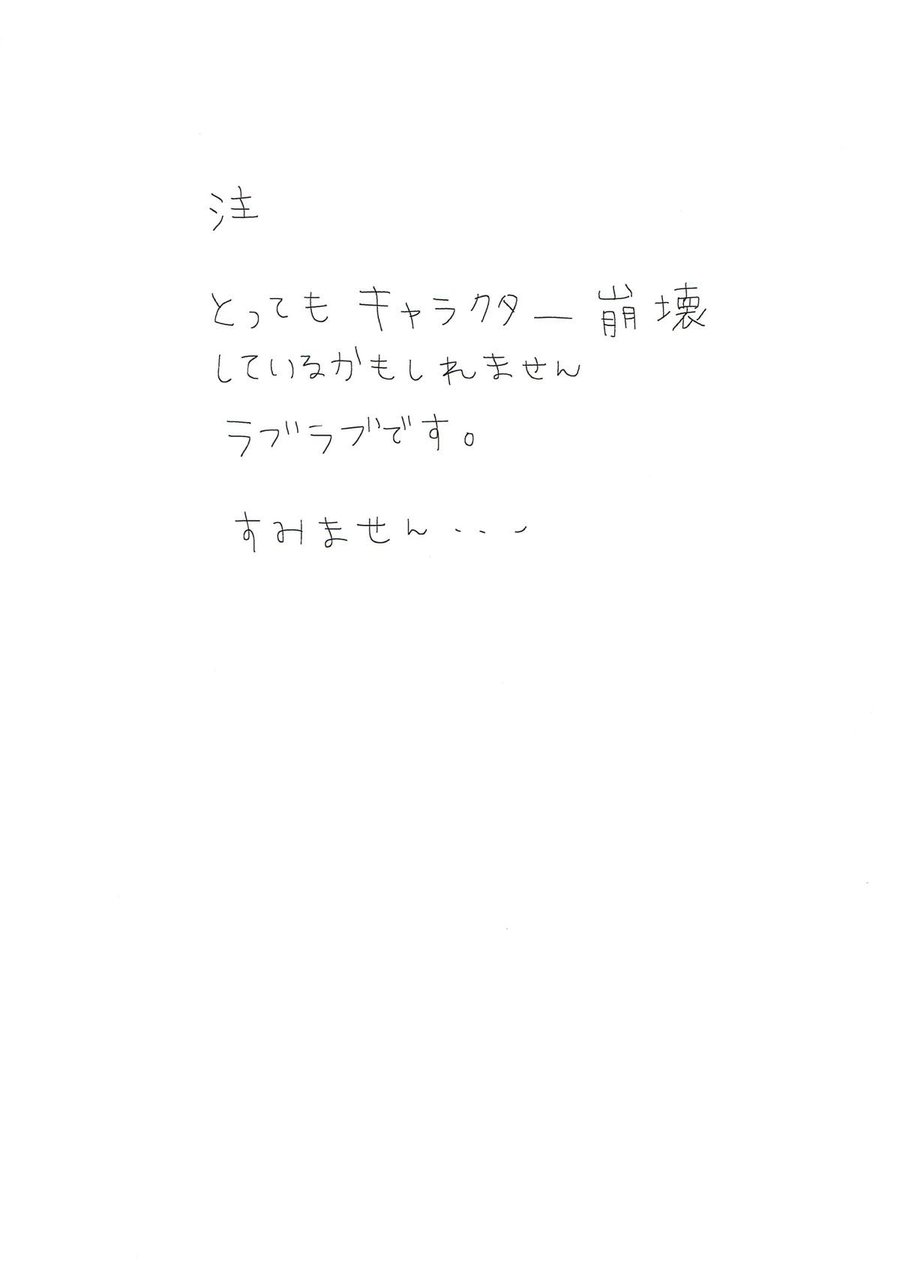 注
とっても キャラクター 崩壊
しているかもしれません
ラブラブです。
すみません・・・